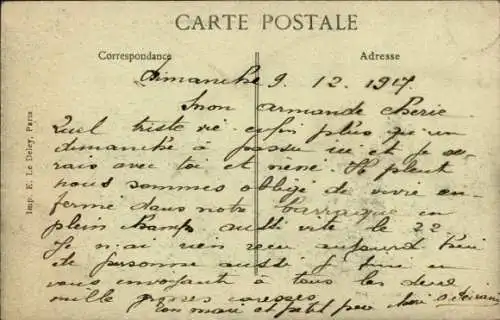 CARTE POSTALE
Correspondance
Adresse
Dimanche 9. 12. 1917
Mon armande cherie
Quel triste vie enfin plus qu'un
dimanche à passer ici et je se-
rais avec toi et néné. Il pleut
nous sommes obligé de vivre en-
fermé dans notre barraque en
plein champ aussi vite le 22
Je n'ai rien recu aujourd'hui
de personne aussi je fini en
vous envoyant à tous les deux
mille grosses caresses
ton mari et petit père
Imp. E. Le Deley, Paris